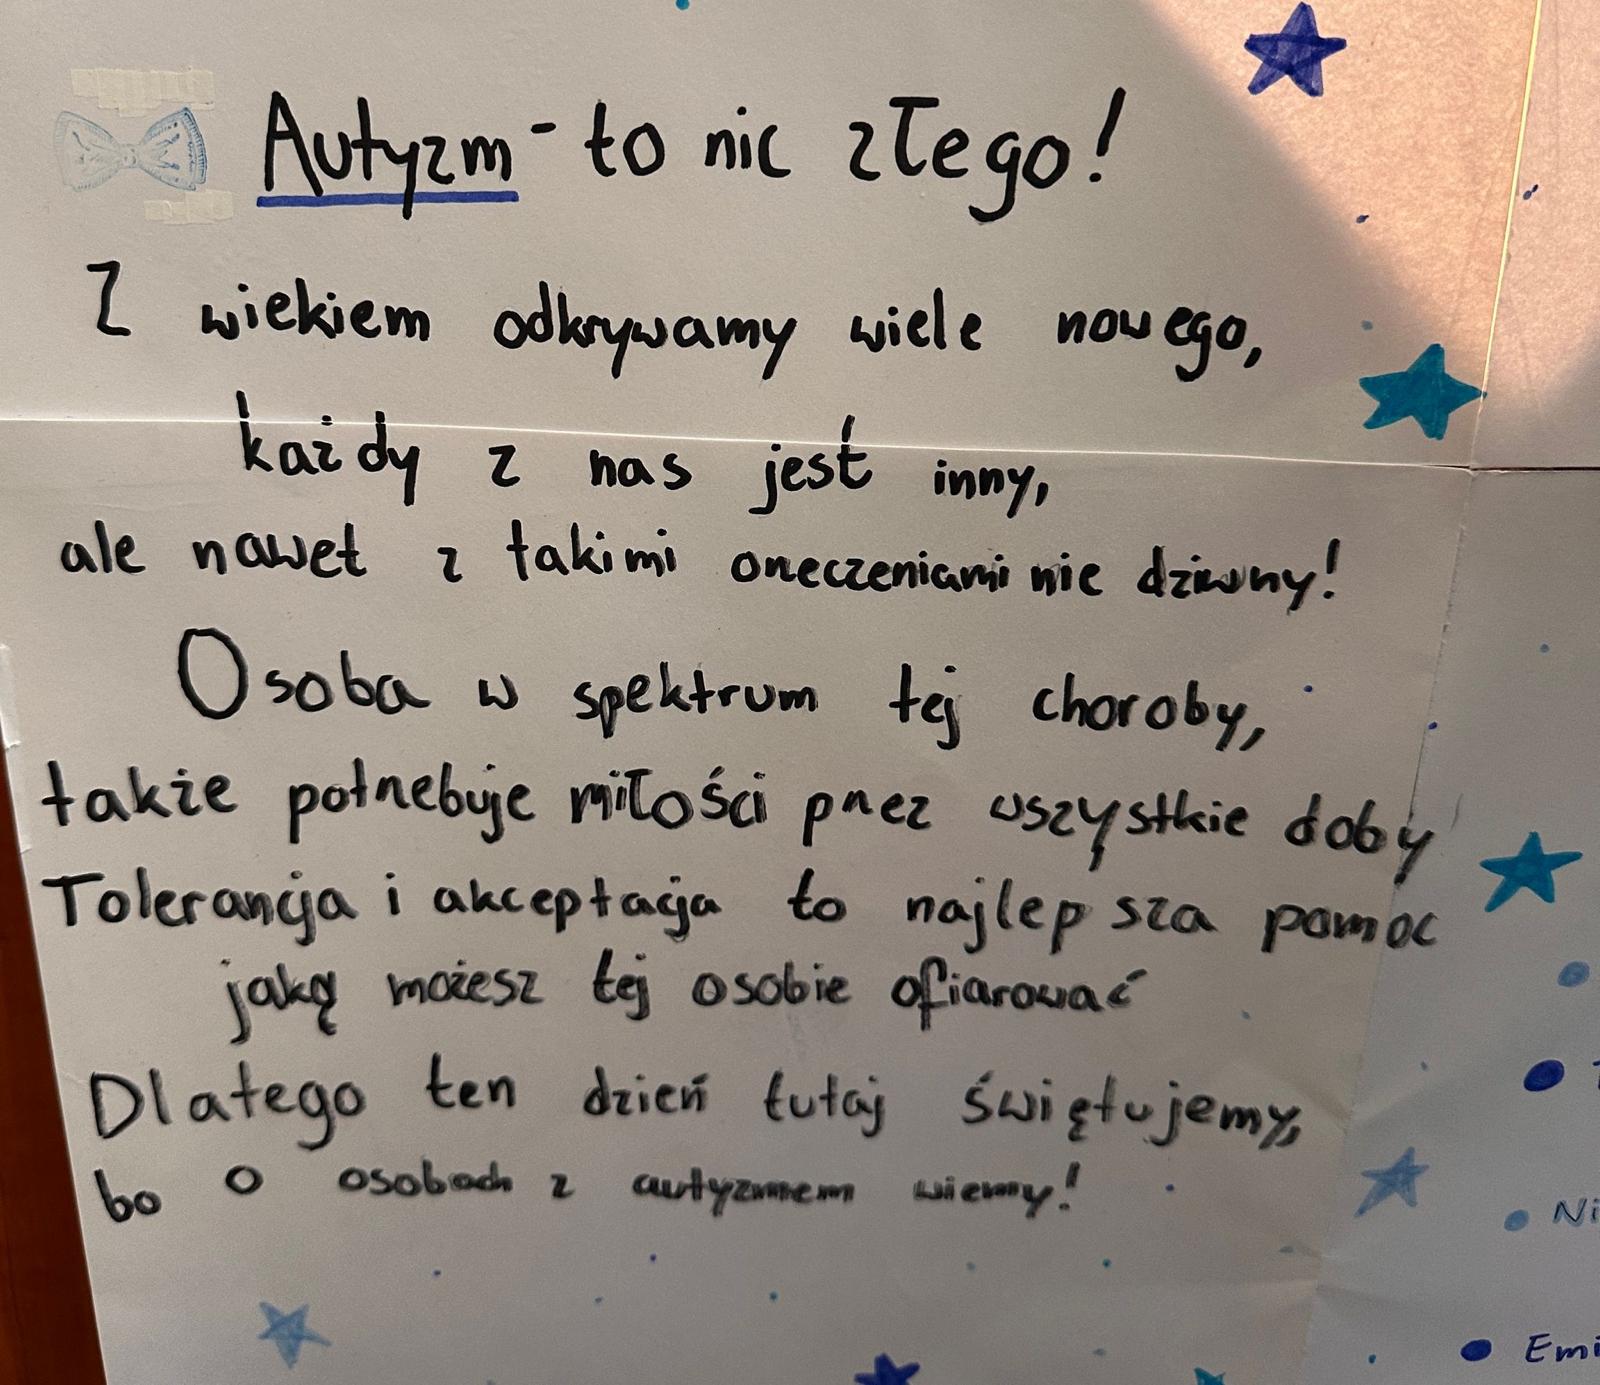 Autyzm - to nic złego!
Z wiekiem odkrywamy wiele nowego,
każdy z nas jest inny,
ale nawet z takimi orzeczeniami nie dziwny!
Osoba w spektrum tej choroby,
także potrzebuje miłości przez wszystkie doby
Tolerancja i akceptacja to najlepsza pomoc
jaką możesz tej osobie ofiarować
Dlatego ten dzień tutaj świętujemy,
bo o osobach z autyzmem wiemy!
Ni
Emi